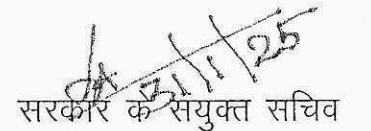 31/1/25
सरकार के सयुक्त सचिव